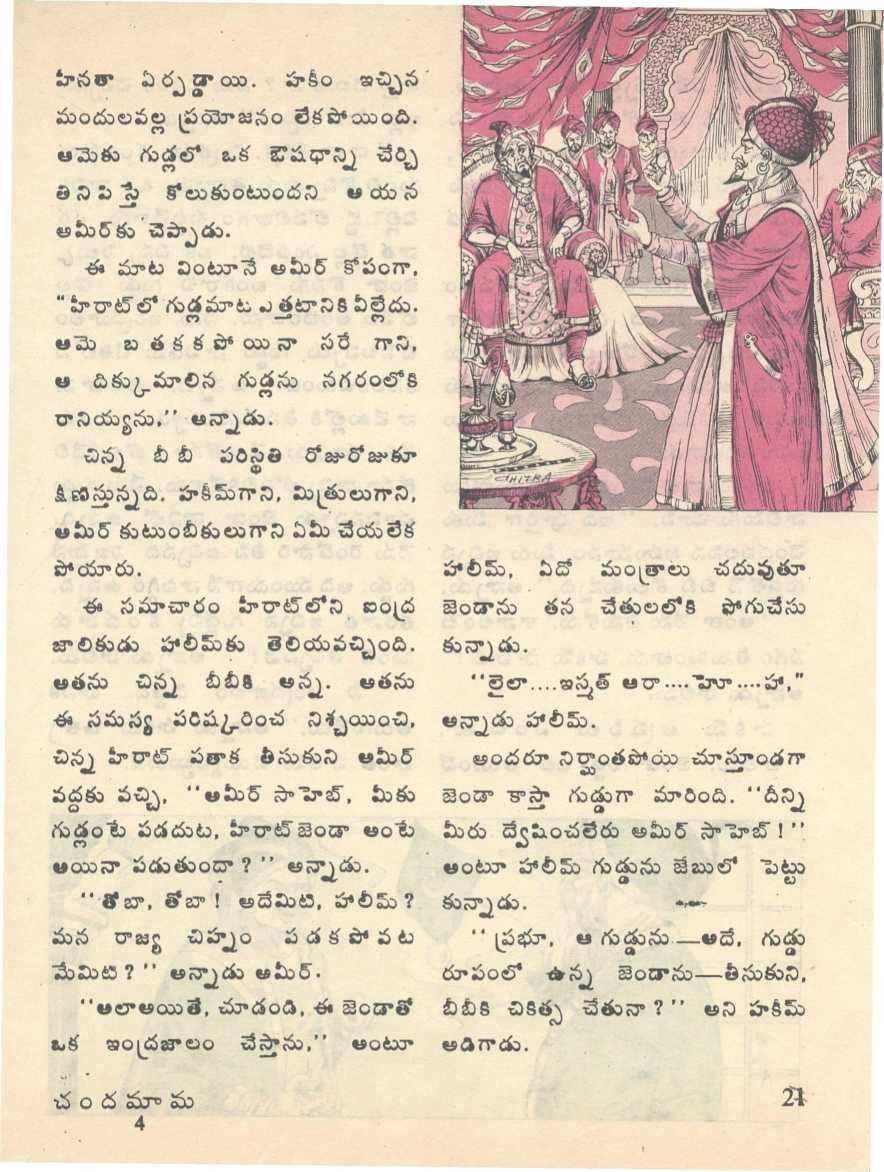 హీనతా ఏర్పడ్డాయి. హకీం ఇచ్చిన
మందులవల్ల ప్రయోజనం లేకపోయింది.
ఆమెకు గుడ్లలో ఒక ఔషధాన్ని చేర్చి
తినిపిస్తే కోలుకుంటుందని ఆయన
అమీర్‌కు చెప్పాడు.
ఈ మాట వింటూనే అమీర్ కోపంగా,
"హీరాట్‌లో గుడ్లమాట ఎత్తటానికి వీల్లేదు.
ఆమె బతకకపోయినా సరే గాని,
ఆ దిక్కుమాలిన గుడ్లను నగరంలోకి
రానియ్యను," అన్నాడు.
చిన్న బీబీ పరిస్థితి రోజురోజుకూ
క్షీణిస్తున్నది. హకీమ్‌గాని, మిత్రులుగాని,
అమీర్ కుటుంబీకులుగాని ఏమీ చేయలేక
పోయారు.
ఈ సమాచారం హీరాట్‌లోని ఐంద్ర
జాలికుడు హాలీమ్‌కు తెలియవచ్చింది.
అతను చిన్న బీబీకి అన్న. అతను
ఈ సమస్య పరిష్కరించ నిశ్చయించి,
చిన్న హీరాట్ పతాక తీసుకుని అమీర్
వద్దకు వచ్చి, "అమీర్ సాహెబ్, మీకు
గుడ్లంటే పడదుట, హీరాట్ జెండా అంటే
అయినా పడుతుందా?" అన్నాడు.
"తోబా, తోబా! అదేమిటి, హాలీమ్?
మన రాజ్య చిహ్నం పడకపోవట
మేమిటి?" అన్నాడు అమీర్.
"అలాఅయితే, చూడండి, ఈ జెండాతో
ఒక ఇంద్రజాలం చేస్తాను," అంటూ
CHITRA
హాలీమ్, ఏదో మంత్రాలు చదువుతూ
జెండాను తన చేతులలోకి ఫోగుచేసు
కున్నాడు.
"లైలా....ఇస్మత్ ఆరా....హెూ....హా,"
అన్నాడు హాలీమ్.
అందరూ నిర్ఘాంతపోయి చూస్తూండగా
జెండా కాస్తా గుడ్డుగా మారింది. "దీన్ని
మీరు ద్వేషించలేరు అమీర్ సాహెబ్!"
అంటూ హాలీమ్ గుడ్డును జేబులో పెట్టు
కున్నాడు.
"ప్రభూ, ఆ గుడ్డును—అదే, గుడ్డు
రూపంలో ఉన్న జెండాను—తీసుకుని,
బీబీకి చికిత్స చేతునా?" అని హకీమ్
అడిగాడు.
చందమామ
21
4